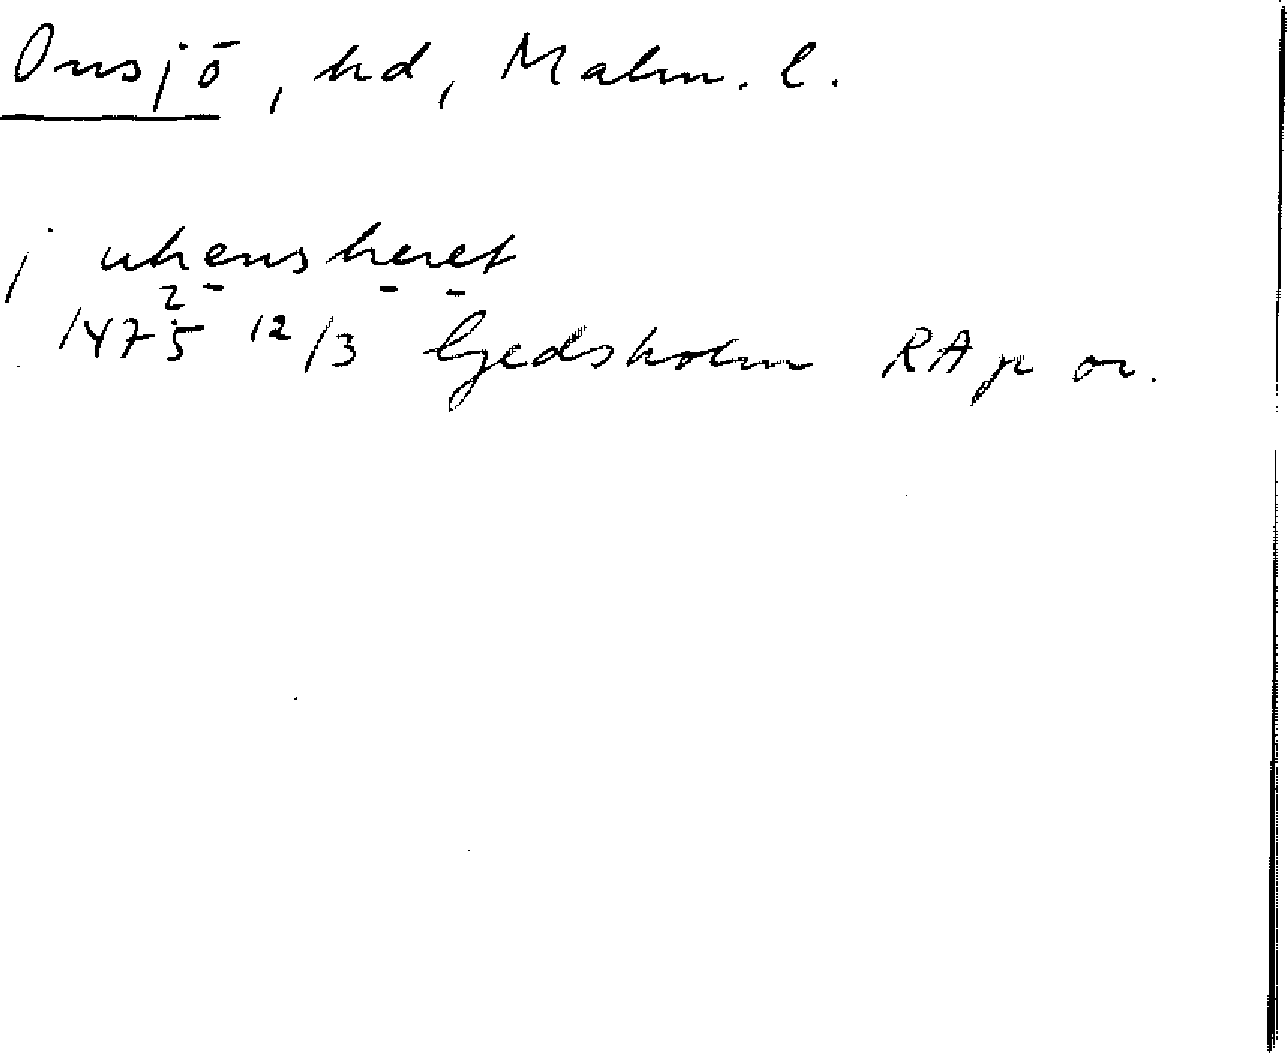 Onsjö, hd, Malm. l.
j uhensheret
2
1475 12/3 Gedsholm RA p or.